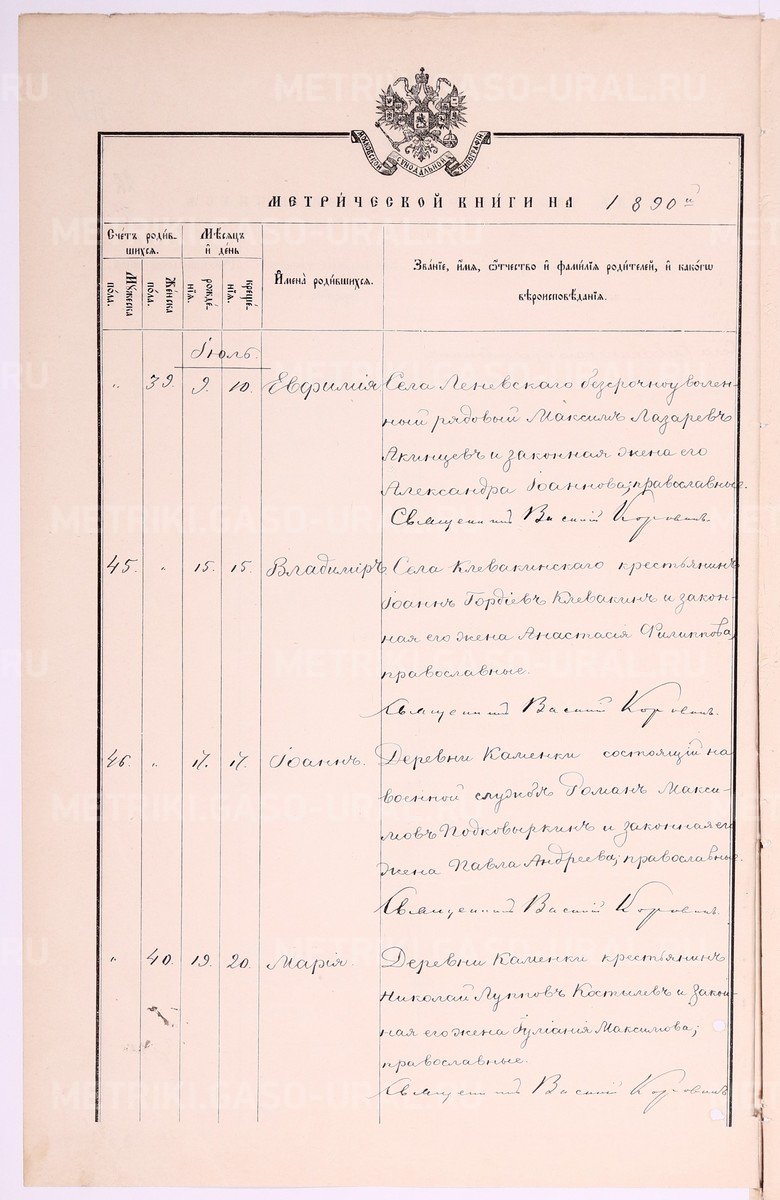 METRIKI.GASO-URAL.RU
МОСКОВСКОЙ СѴНОДАЛЬНОЙ ТИПОГРАФІИ
МЕТРИ́ЧЕСКОЙ КНИ́ГИ НА 1890й
Сче́тъ роди́в-
шихсѧ.
Мѣ́сѧцъ
и҆ де́нь
И҆мена̀ роди́вшихсѧ.
Зва́нїе, и҆́мѧ, ѻ҆́тчество и҆ фами́лїѧ роди́телей, и҆ како́гѡ
вѣроисповѣ́данїѧ.
Мꙋ́жеска
по́ла.
Же́нска
по́ла.
рожде́-
нїѧ.
креще́-
нїѧ.
Іюль.
" 39. 9. 10. Евфимія Села Леневскаго безсрочноуволен-
ный рядовый Максимъ Лазаревъ
Акинцевъ и законная жена его
Александра Іоаннова; православные.
Священникъ Василій Коровинъ.
45. " 15. 15. Владиміръ Села Клевакинскаго крестьянинъ
Іоаннъ Гордіевъ Клевакинъ и закон-
ная его жена Анастасія Филиппова,
православные.
Священникъ Василій Коровинъ.
46. " 17. 17. Іоаннъ. Деревни Каменки состоящій на
военной службѣ Романъ Макси-
мовъ Подковыркинъ и законная его
жена Павла Андреева; православные.
Священникъ Василій Коровинъ.
" 40. 19. 20. Марія. Деревни Каменки крестьянинъ
Николай Лупповъ Костылевъ и закон-
ная его жена Іуліанія Максимова;
православные.
Священникъ Василій Коровинъ